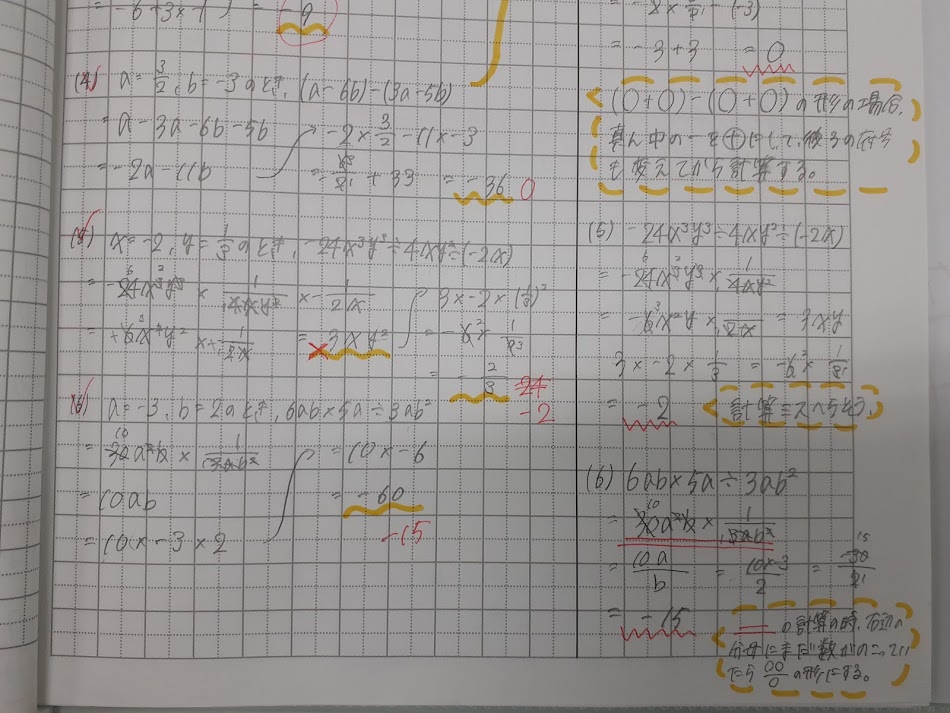 = -6+3×-1 = -9
(4) a=3/2, b=-3のとき, (a-6b)-(3a-5b)
= a-3a-6b-5b
= -2a-11b
-2×3/2-11×-3
+33 = -36 0
(5) x=-2, y=1/3のとき, -24x³y³÷4xy²÷(-2x)
= -24x³y³ × 1/4xy² × -1/2x
= +6x²y² × 1/2x = 3xy²
3×-2×(1/3)²
= -6 × 1/9
= -2/3 -24
-2
(6) a=-3, b=2のとき, 6ab×5a÷3ab²
= 30a²b × 1/3ab²
= 10ab
= 10×-3×2
= 10×-6
= -60
-15
-(-3)
= -3+3 = 0
(○+○)-(○+○)の形の場合,
真ん中の-を⊕にして、後ろの符号
を変えてから計算する。
(5) -24x³y³÷4xy²÷(-2x)
= -24x³y³ × 1/4xy²
= -6x²y × 1/2x = 3xy
3×-2×1/3 = -6 × 1/3
= -2 計算ミスへらそう。
(6) 6ab×5a÷3ab²
= 30a²b × 1/3ab²
= 10a/b = 10×-3/2 = -30/2
= -15
の計算の時、右辺の
分母にまだ数がのこってい
たら ○○/○ の形にする。